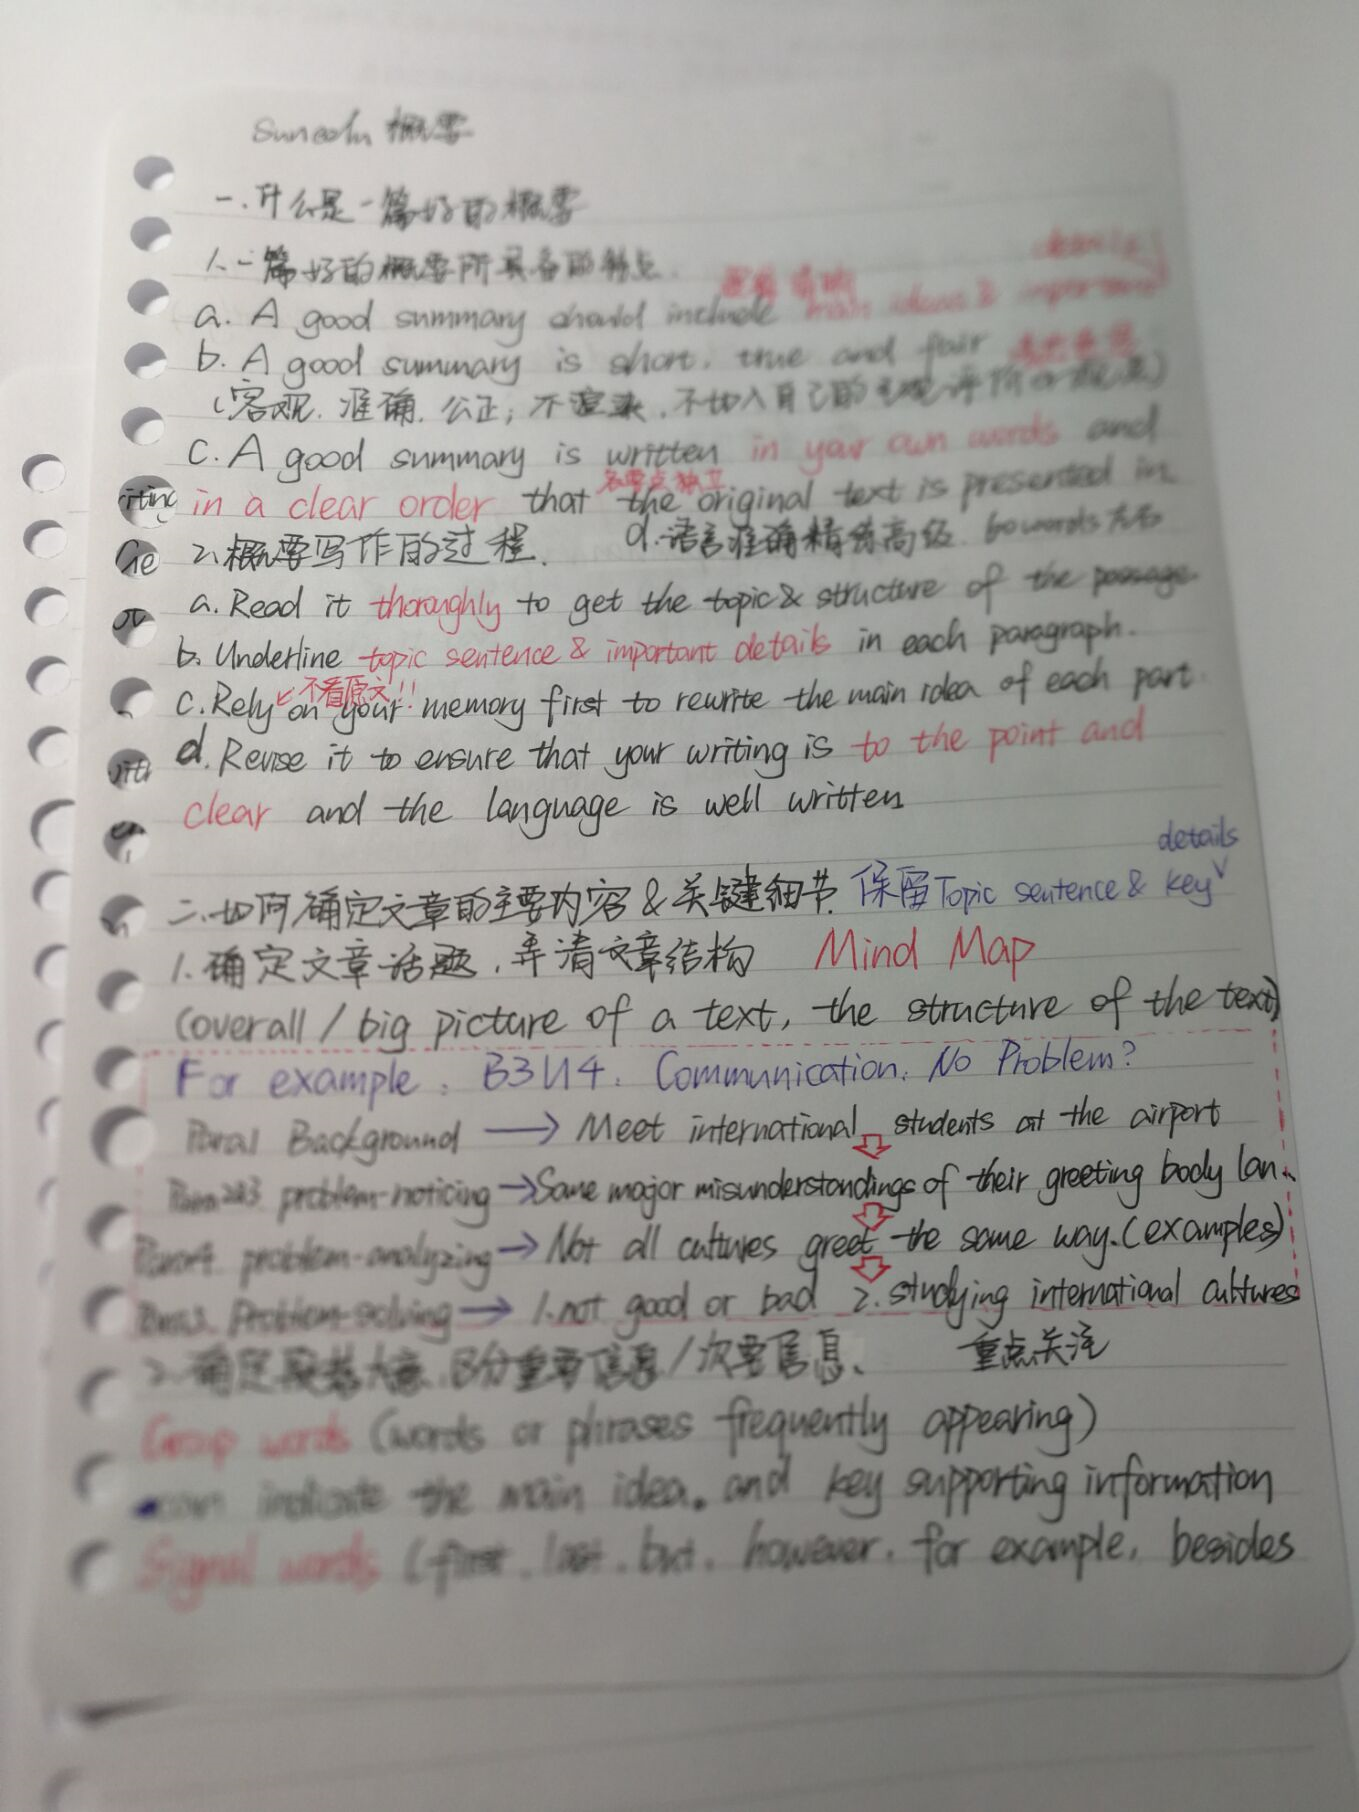 概要
一.什么是一篇好的概要
1.一篇好的概要所具备的特点.
details
a. A good summary should include main ideas & important
b. A good summary is short, true and fair
(客观.准确.公正;不渲染.不切入自己的主观评价或观点)
C. A good summary is written in your own words and
各要点独立
in a clear order that the original text is presented in.
2.概要写作的过程.
d.语言准确精练高级. 60words左右
a. Read it thoroughly to get the topic & structure of the passage
b. Underline topic sentence & important details in each paragraph.
不看原文!!
c. Rely on your memory first to rewrite the main idea of each part.
d. Revise it to ensure that your writing is to the point and
clear and the language is well written
details
二.如何确定文章的主要内容&关键细节. 保留Topic sentence & key
1.确定文章话题,弄清文章结构 Mind Map
(overall / big picture of a text, the structure of the text)
For example. B3U4. Communication. No Problem?
Para1 Background → Meet international students at the airport
Para2&3 problem-noticing → Some major misunderstandings of their greeting body lan.
Para4 problem-analyzing → Not all cultures greet the same way. (examples)
Para5 Problem-solving → 1. not good or bad 2. studying international cultures
2.确定段落大意.区分重要信息/次要信息. 重点关注
Group words (words or phrases frequently appearing)
can indicate the main idea. and key supporting information
Signal words (first. last. but. however. for example. besides